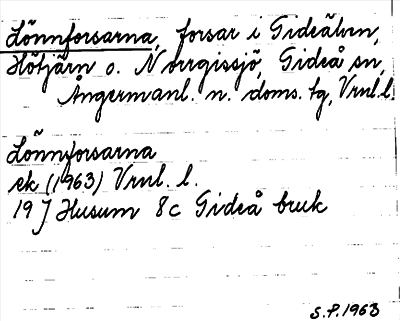 Lönnforsarna, forsar i Gideälven,
Hötjärn o. Norrgissjö, Gideå sn,
Ångermanl. n. doms. tg, Vrnl.l.
Lönnforsarna
ek (1963) Vrnl. l.
19 J Husum 8c Gideå bruk
S.P. 1963